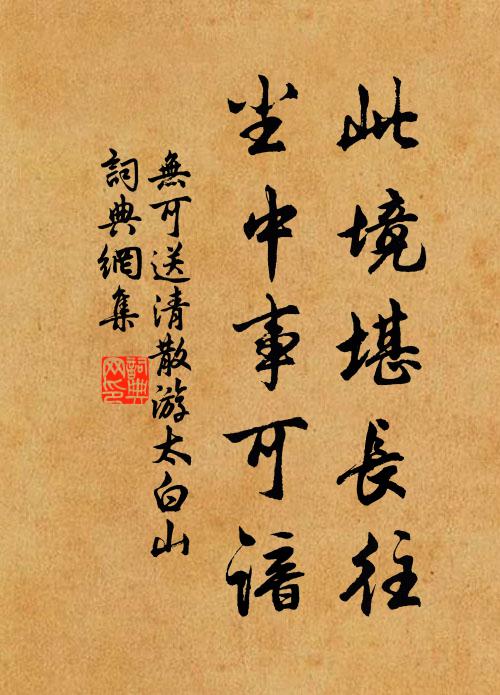 此境堪長往
尘中事可谙
無可送清散游太白山
詞典網集
詞典网印